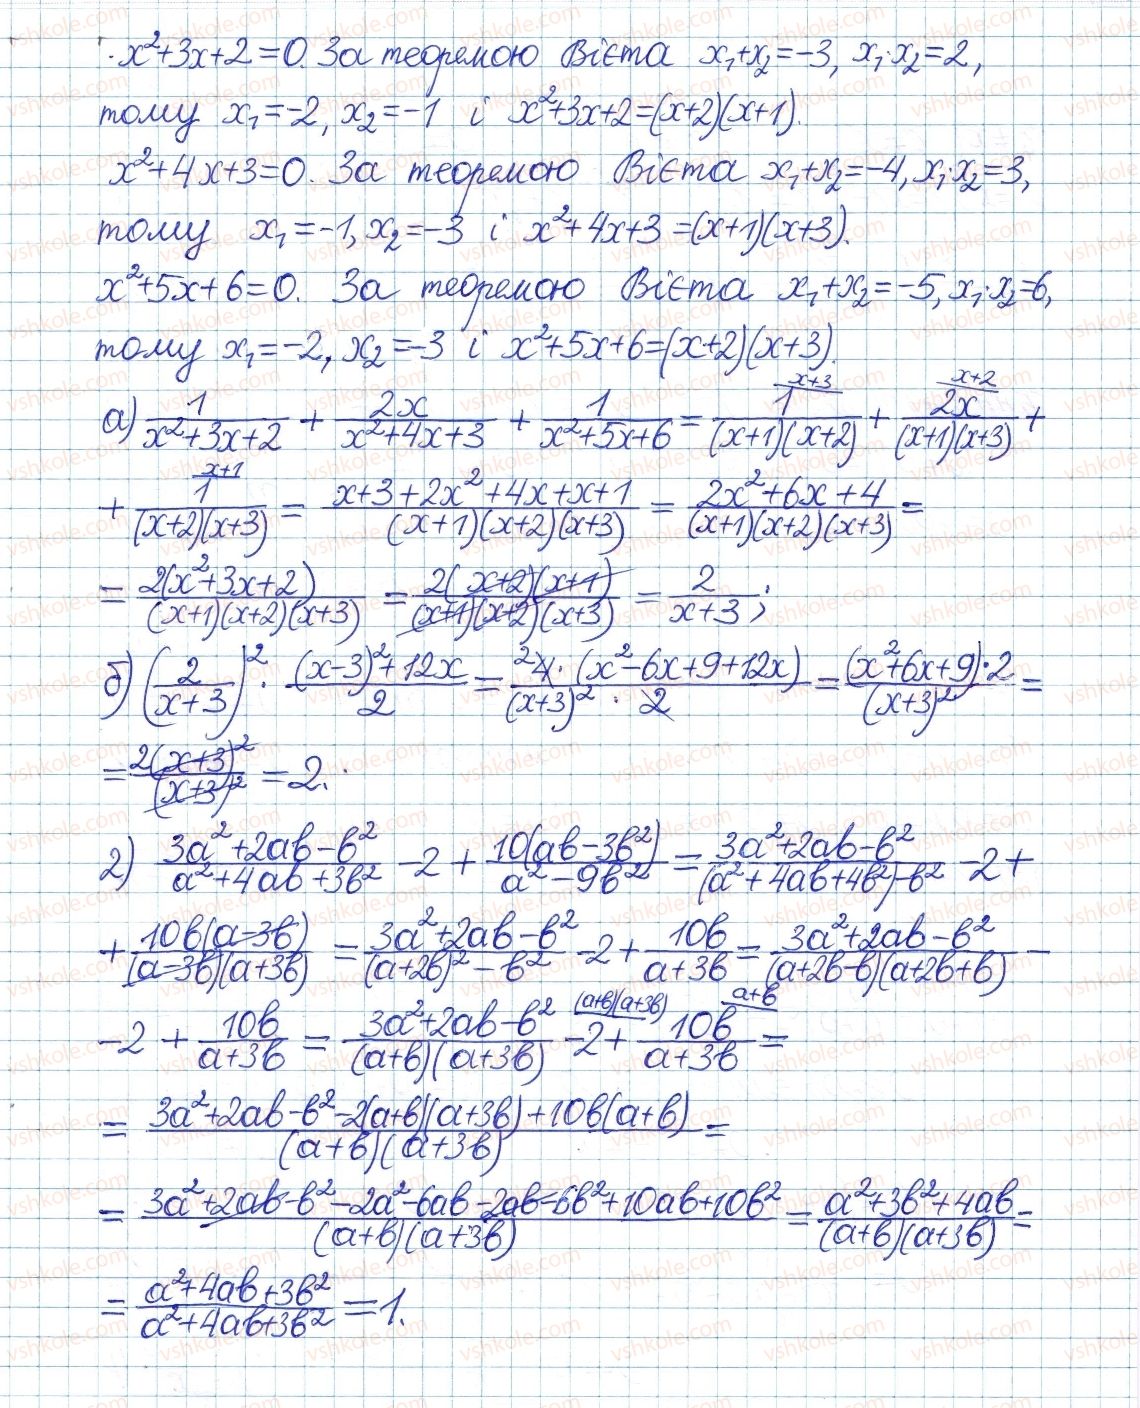 x²+3x+2=0. За теоремою Вієта x₁+x₂=-3, x₁·x₂=2,
тому x₁=-2, x₂=-1 і x²+3x+2=(x+2)(x+1).
x²+4x+3=0. За теоремою Вієта x₁+x₂=-4, x₁·x₂=3,
тому x₁=-1, x₂=-3 і x²+4x+3=(x+1)(x+3).
x²+5x+6=0. За теоремою Вієта x₁+x₂=-5, x₁·x₂=6,
тому x₁=-2, x₂=-3 і x²+5x+6=(x+2)(x+3).
а) 1/(x²+3x+2) + 2x/(x²+4x+3) + 1/(x²+5x+6) = 1^(x+3)/((x+1)(x+2)) + 2x^(x+2)/((x+1)(x+3)) +
+ 1^(x+1)/((x+2)(x+3)) = (x+3+2x²+4x+x+1)/((x+1)(x+2)(x+3)) = (2x²+6x+4)/((x+1)(x+2)(x+3)) =
= 2(x²+3x+2)/((x+1)(x+2)(x+3)) = 2(x+2)(x+1)/((x+1)(x+2)(x+3)) = 2/(x+3);
б) (2/(x+3))² · ((x-3)²+12x)/2 = ²4·(x²-6x+9+12x)/((x+3)²·2) = (x²+6x+9)·2/(x+3)² =
= 2(x+3)²/(x+3)² = 2.
2) (3a²+2ab-b²)/(a²+4ab+3b²) -2 + 10(ab-3b²)/(a²-9b²) = (3a²+2ab-b²)/((a²+4ab+4b²)-b²) -2+
+ 10b(a-3b)/((a-3b)(a+3b)) = (3a²+2ab-b²)/((a+2b)²-b²) -2+ 10b/(a+3b) = (3a²+2ab-b²)/((a+2b-b)(a+2b+b)) -
-2 + 10b/(a+3b) = (3a²+2ab-b²)/((a+b)(a+3b)) -2^((a+b)(a+3b)) + 10b^(a+b)/(a+3b) =
= (3a²+2ab-b²-2(a+b)(a+3b)+10b(a+b))/((a+b)(a+3b)) =
= (3a²+2ab-b²-2a²-6ab-2ab-6b²+10ab+10b²)/((a+b)(a+3b)) = (a²+3b²+4ab)/((a+b)(a+3b)) =
= (a²+4ab+3b²)/(a²+4ab+3b²) = 1.
vshkole.com